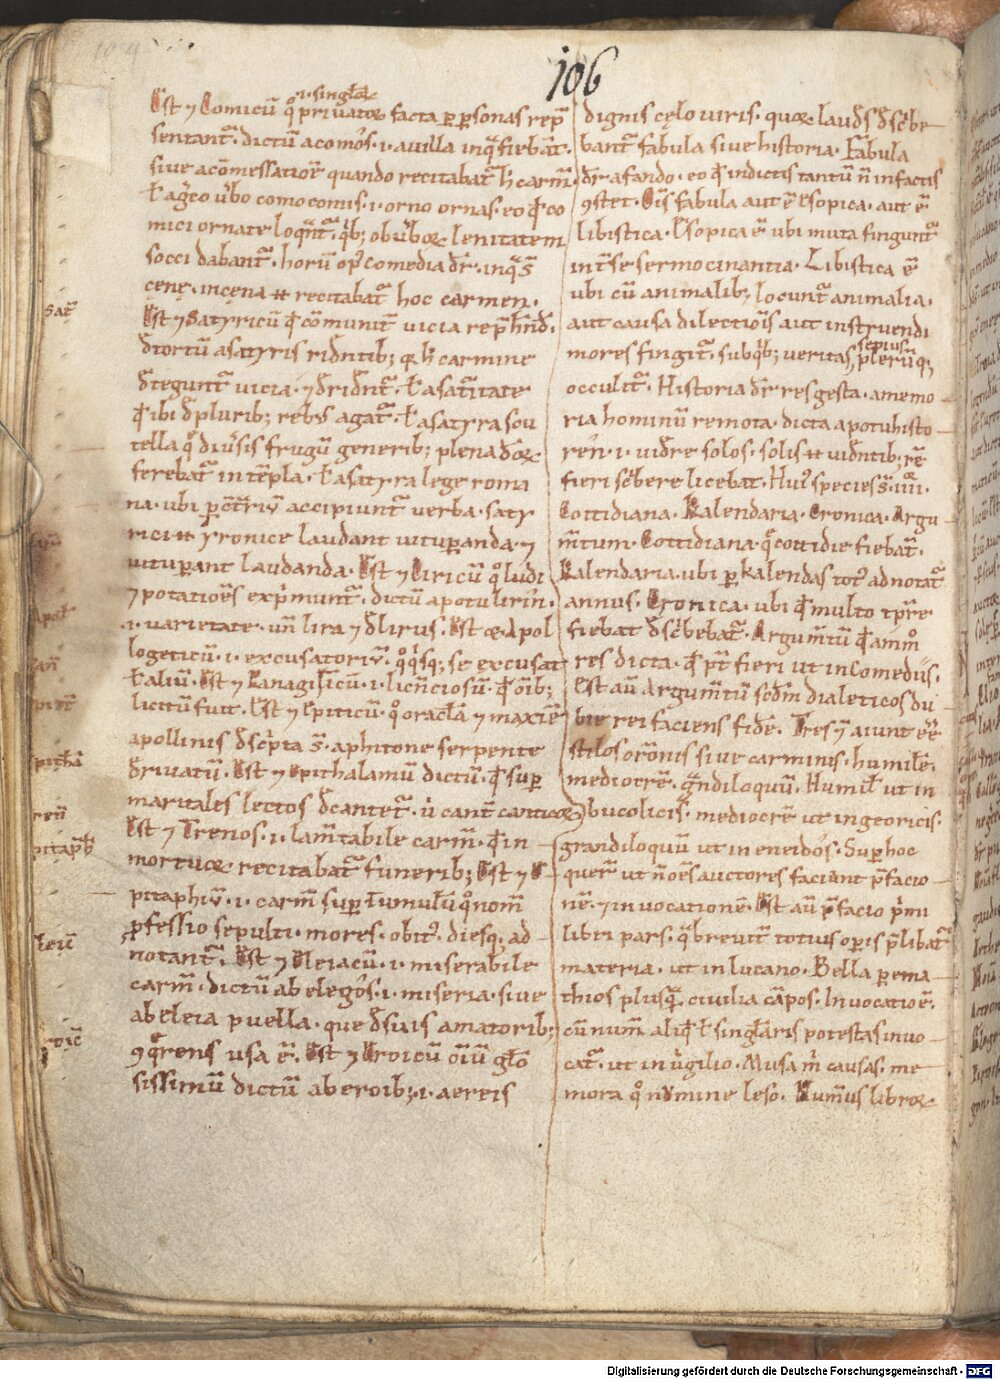 106
.i. singłaꝝ
Est ⁊ Comicū qͦ priuatoꝝ facta ꝑ ꝑsonas rep̄
sentant᷑. dictū a comos .i. a uilla in q̄ fiebāt.
siue a cōmessatioē quando recitabat᷑ h̄ carm̄.
ł a greco ūbo como comis .i. orno ornas. eo qđ co
mici ornate loqn̄t᷑ qͥb; ob ūboꝝ lenitatem
socci dabant᷑. horū opꝰ comedia dr̄. in q̄ s̄
cenę. in cęna .n. recitabat᷑ hoc carmen.
Est ⁊ Satyricū qđ cōmunit̄ uicia rep̄hn̄d.
dtortū a satyris ridn̄tib; q h̄ carmine
dtegunt᷑ uicia. ⁊ dridn̄t᷑. ł a sat̄itate
qđ ibi d plurib; rebꝰ agat᷑. ł a satyra scu
tella qͣ diūsis frugū generib; plena deoꝝ
ferebat᷑ in tēpla. ł a satyra lege roma
na. ubi ꝑ cōtrariū accipiunt᷑ uerba. saty
rici .n. yronice laudant uituꝑanda. ⁊
uituꝑant laudanda. Est ⁊ Liricū qͦ ludi
⁊ potatioēs exp̄munt᷑. dictū apotu lirin.
.i. uarietate. un̄ lira ⁊ dlirus. Est ⁊ Apol
logeticū .i. excusatoriū. qͦ qͥsq; se excusat
ł aliū. Est ⁊ Panagiricū .i. licn̄ciosū. qđ oīb;
licitū fuit. Est ⁊ Epiticū. qͦ oracła ⁊ maxīe
apollinis dsc̄pta s̄. a phitone serpente
dr̄iuatū. Est ⁊ Epithalamū dictū. qđ suꝑ
maritales lectos dcantet᷑. ubi cant̄ canticoꝝ
Est ⁊ Trenos .i. lam̄tabile carm̄. qđ in
mortuoꝝ recitabat᷑ funerib; Est ⁊ E
pitaphiū .i. carm̄ suꝑ tumulū qͦ nom̄
ꝓfessio sepulti. mores. obitꝰ. diesq; ad
notant᷑. Est ⁊ Eleiacū .i. miserabile
carm̄. dictū ab elegos .i. miseria. siue
ab eleia puella. que d suis amatorib;
ꝯqrens usa ē. Est ⁊ Eroicū oīū glo
sissimū dictū ab eroib; .i. aereis
dignis cęlo uiris. quoꝝ laudes dsc̄be
bant᷑ fabula siue historia. Fabula
dr̄ a fando. eo qđ in dictis tantū n̄ in factis
ꝯstet. Ois fabula aut ē Esopica. aut ē
libistica. Esopica ē ubi muta fingunt᷑
int̄ se sermocinantia. Libistica ē
ubi cū animalib; locunt᷑ animalia.
aut causa dilectiois aut instruendi
sepius
mores fingit᷑. sub qͥb; ueritas plerūq;
occulit᷑. Historia dr̄ res gesta. a memo
ria hominū remota. dicta apotu histo
ren .i. uidre solos. solis .n. uidn̄tib; rē
fieri sc̄bere licebat. Huiꝰ species s̄ .iiii.
Cottidiana. Kalendaria. Cronica. Argu
m̄tum. Cottidiana qͣ cottidie fiebat.
Kalendaria. ubi ꝑ kalendas totꝰ adnotat᷑
annus. Cronica. ubi qđ multo tp̄re
fiebat dsc̄bebat᷑. Argum̄tū qđ amm̄
res dicta. qđ pt̄ fieri ut in comediis.
Est aū Argum̄tū scdm̄ dialeticos du
bie rei faciens fidē. Tres ⁊ aiunt eē
stilos orōnis siue carminis. humilē.
mediocrē. grandiloquū. Humił ut in
bucolicis. mediocrē ut in georicis.
grandiloquū ut in eneidos. Suꝑ hoc
querit᷑ ut n̄ oēs auctores faciant p̄facio
nē. ⁊ inuocationē. Est aū p̄facio p̄mi
libri pars. q̄ breuit̄ totius oꝑis p̄libat᷑
materia. ut in lucano. Bella ꝑ ema
thios plusq̄ ciuilia cāpos. Inuocatio ē.
cū num̄ aliqđ ł singłaris potestas inuo
cat᷑. ut in uirgilio. Musa m̄ causas me
mora qͦ numine leso. Num̄us libroꝝ
Sat̄
Digitalisierung gefördert durch die Deutsche Forschungsgemeinschaft - DFG